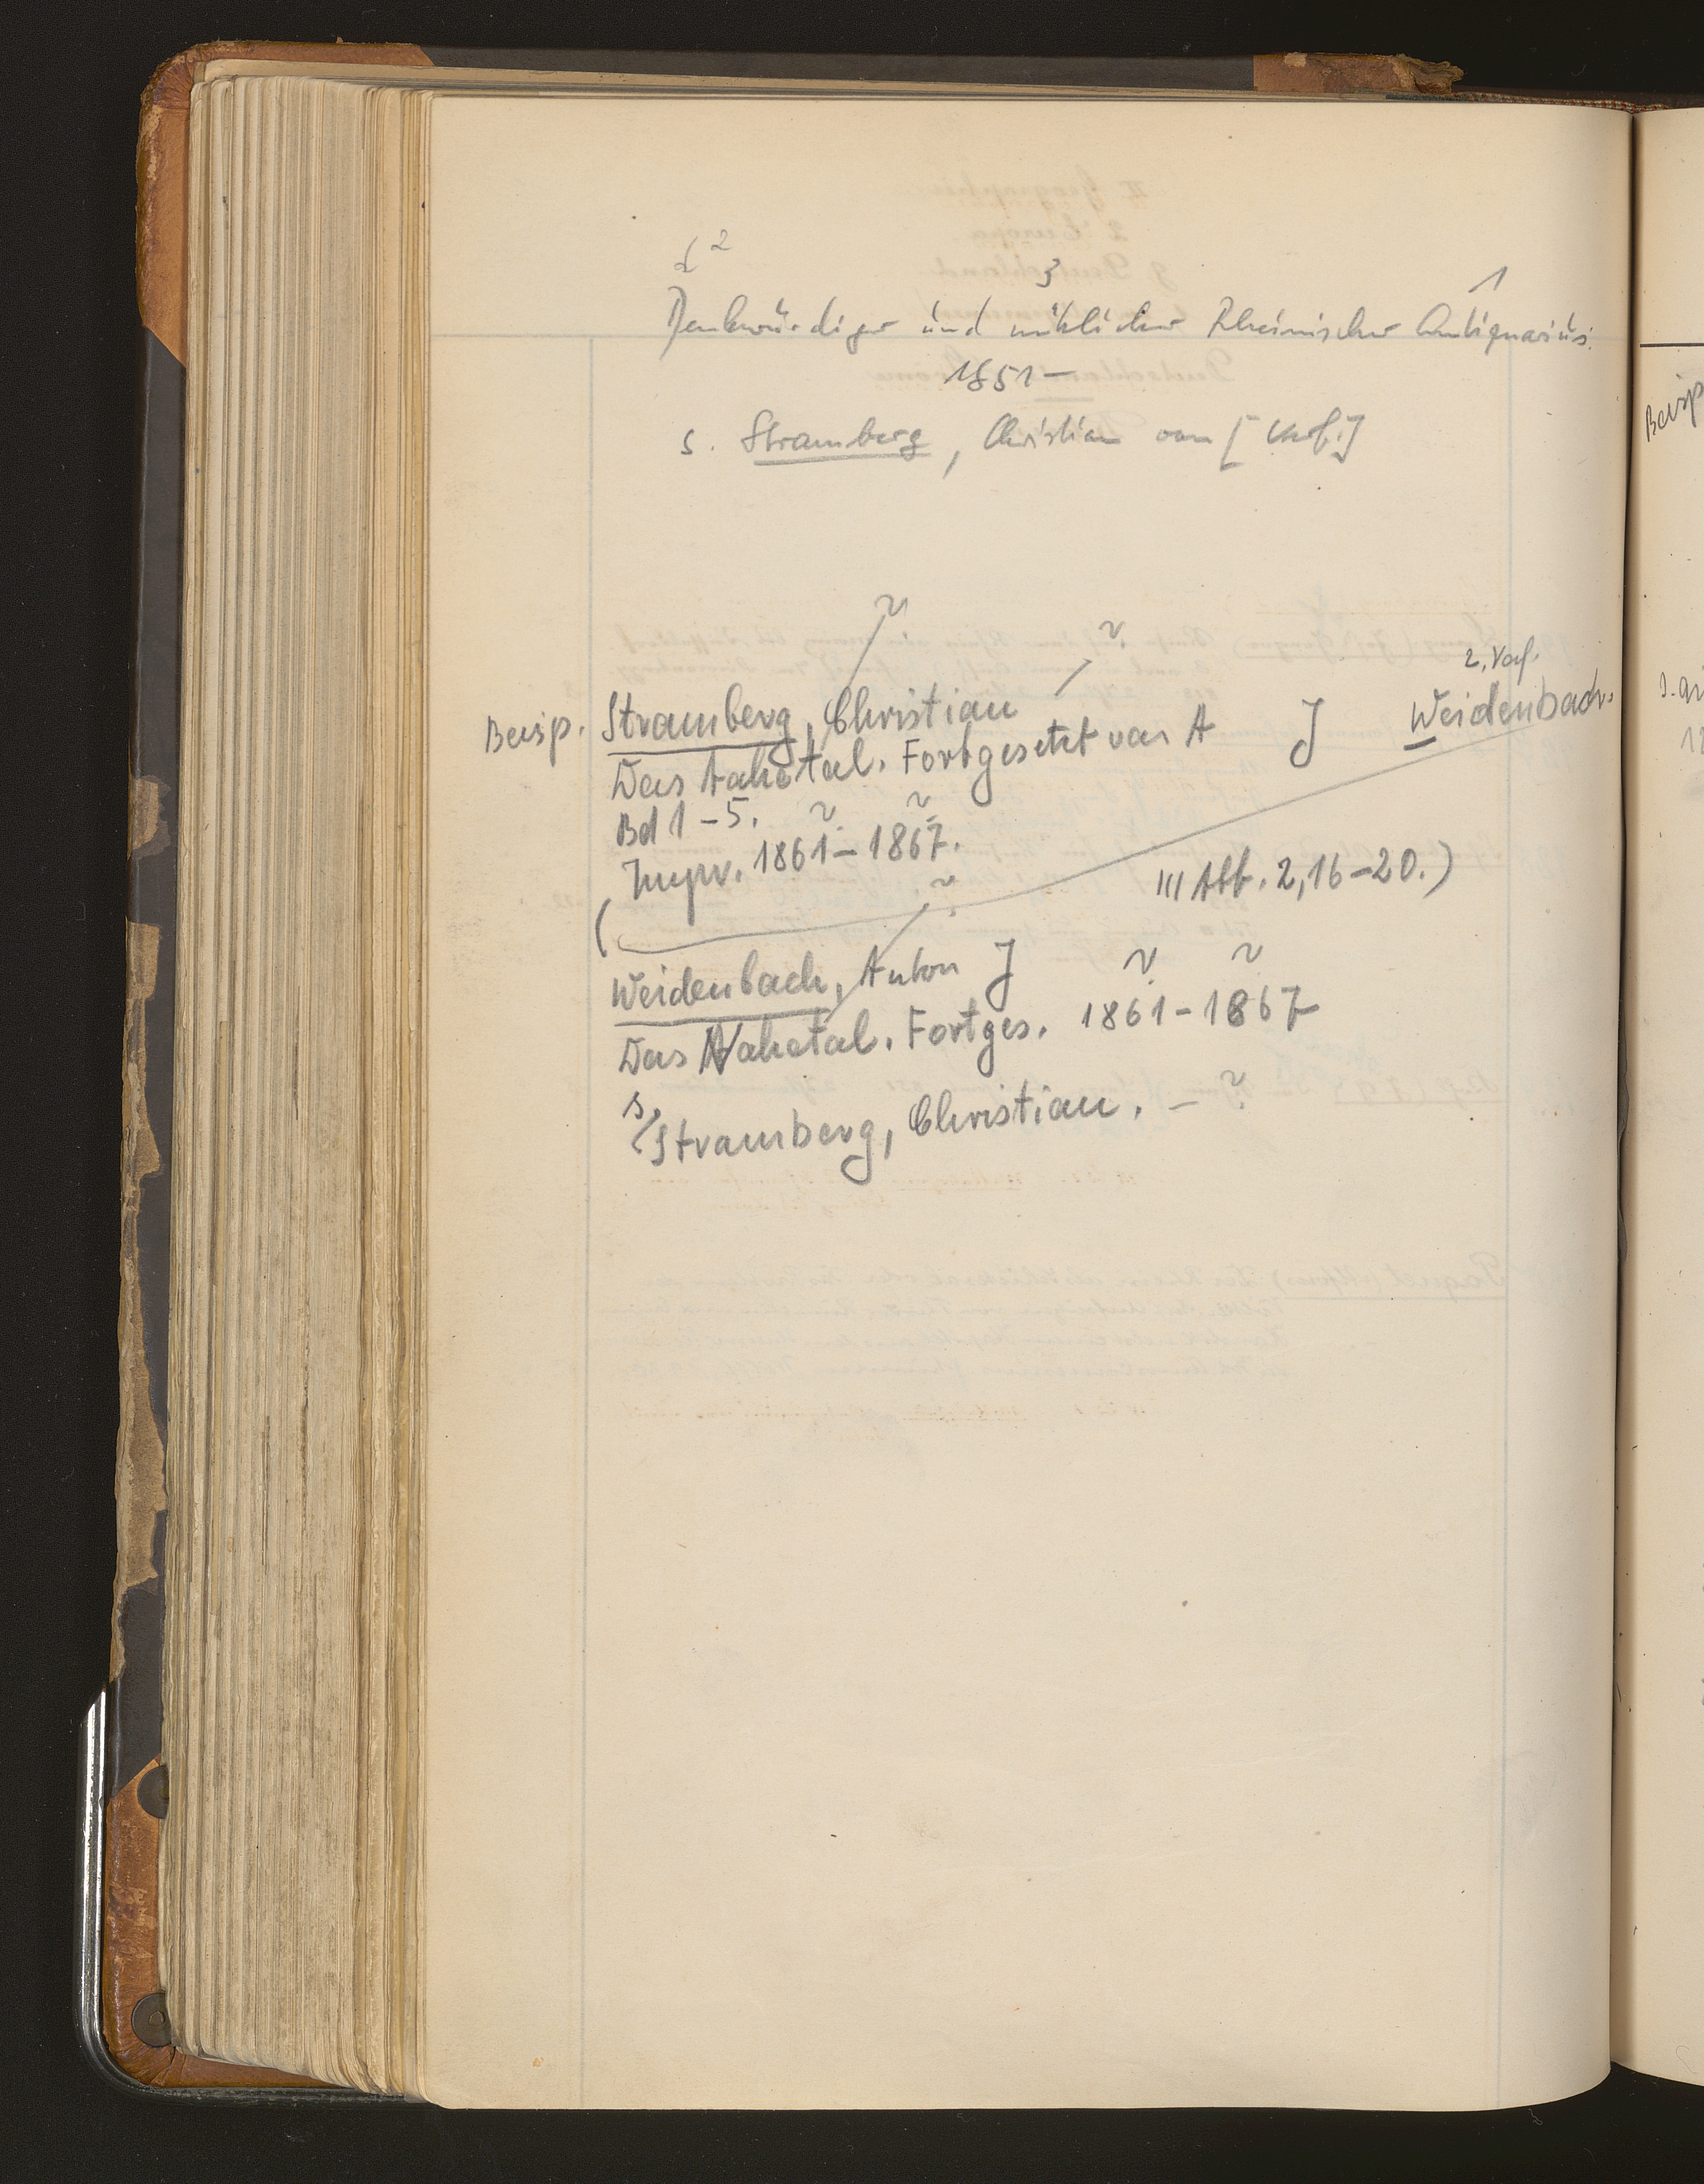 2 3 1
Denkwürdiger und nützlicher Rheinischer Antiquarius.
1851–
s. Stramberg, Christian von [Verf.]
2. Verf.
Beisp. Stramberg, Christian
Das Nahetal. Fortgesetzt von A J Weidenbach.
Bd 1–5.
1861–1867.
( III Abt. 2,16–20.)
Weidenbach, Anton J
Das Nahetal. Fortges. 1861–1867
s.
Stramberg, Christian. –
Beisp